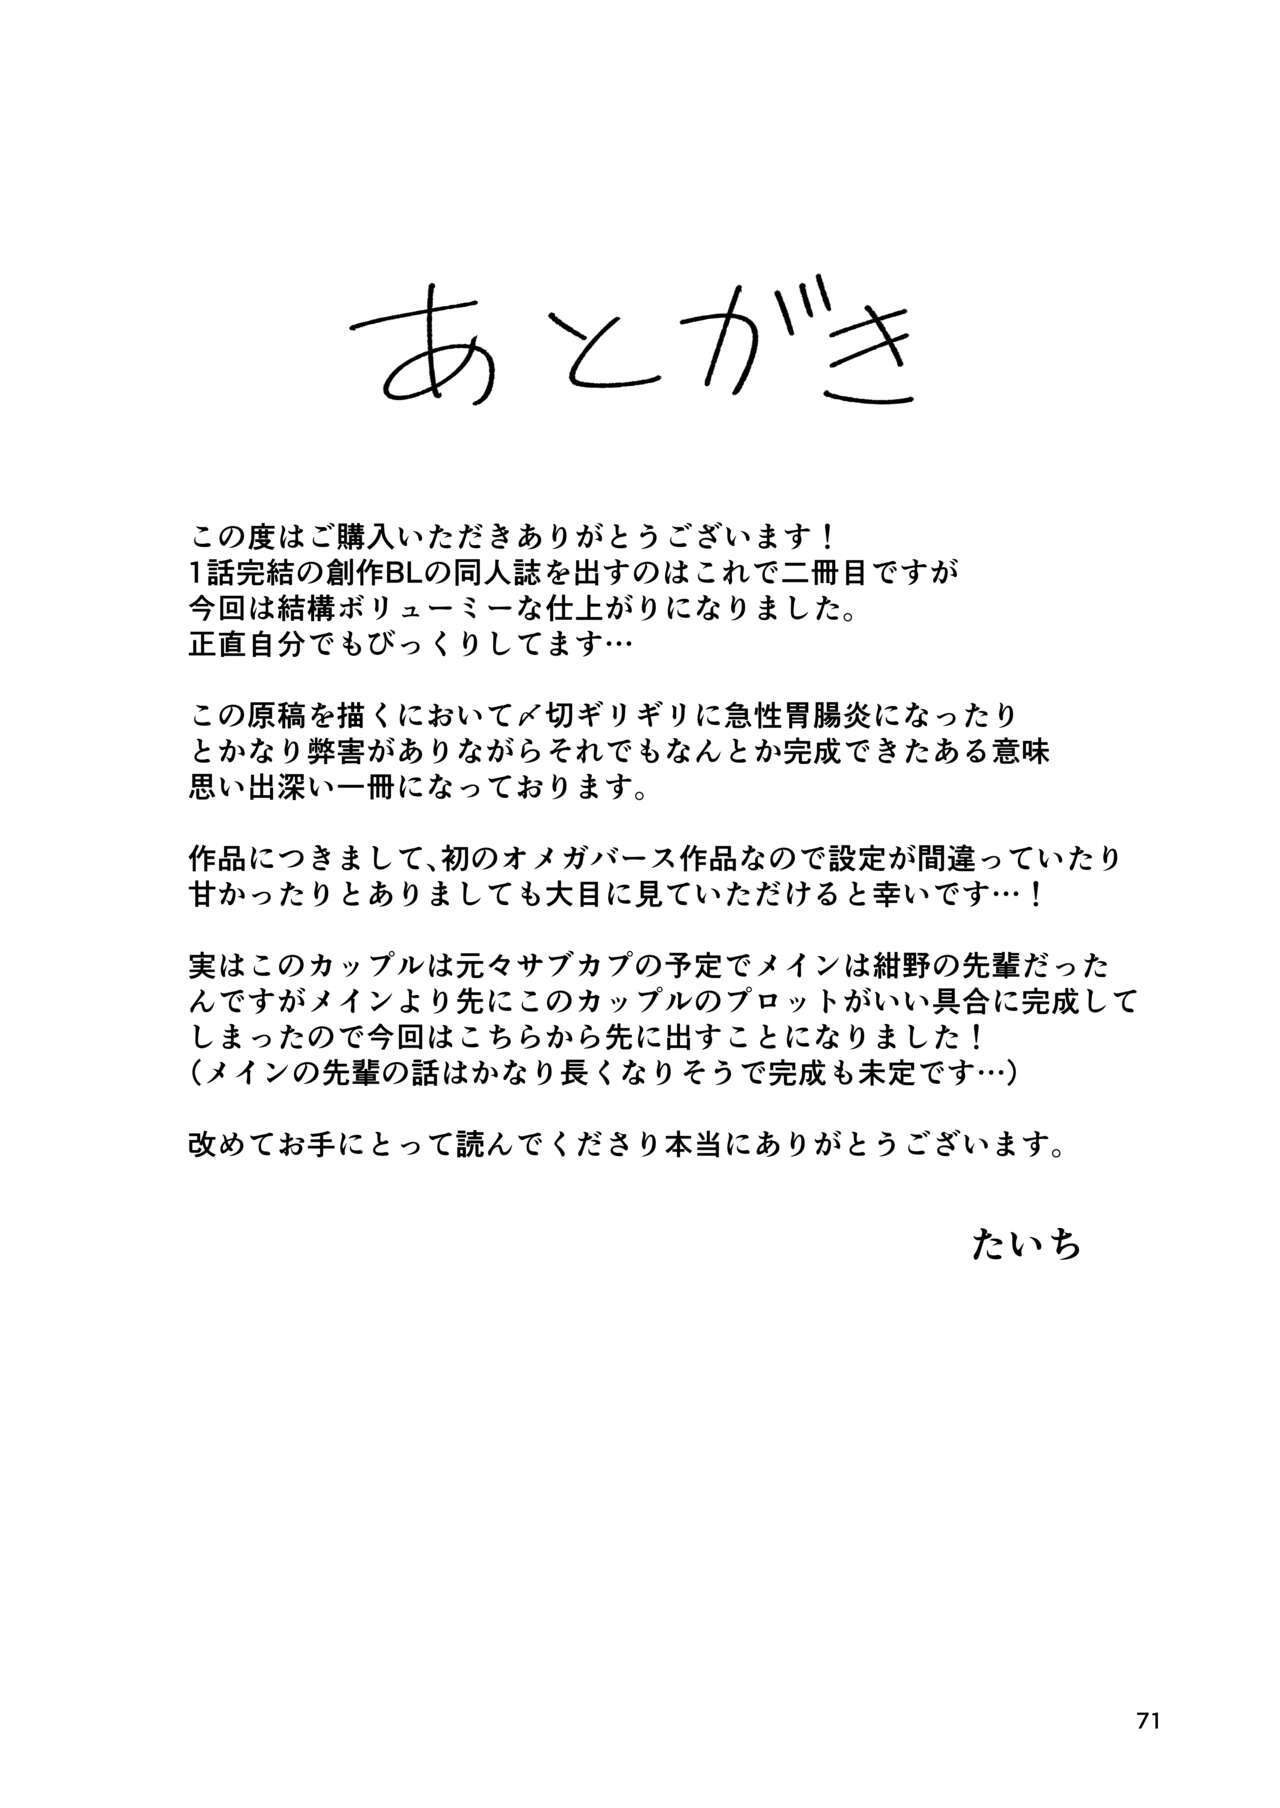 あとがき
この度はご購入いただきありがとうございます！
1話完結の創作BLの同人誌を出すのはこれで二冊目ですが
今回は結構ボリューミーな仕上がりになりました。
正直自分でもびっくりしてます…
この原稿を描くにおいて〆切ギリギリに急性胃腸炎になったり
とかなり弊害がありながらそれでもなんとか完成できたある意味
思い出深い一冊になっております。
作品につきまして、初のオメガバース作品なので設定が間違っていたり
甘かったりとありましても大目に見ていただけると幸いです…！
実はこのカップルは元々サブカプの予定でメインは紺野の先輩だった
んですがメインより先にこのカップルのプロットがいい具合に完成して
しまったので今回はこちらから先に出すことになりました！
（メインの先輩の話はかなり長くなりそうで完成も未定です…）
改めてお手にとって読んでくださり本当にありがとうございます。
たいち
71